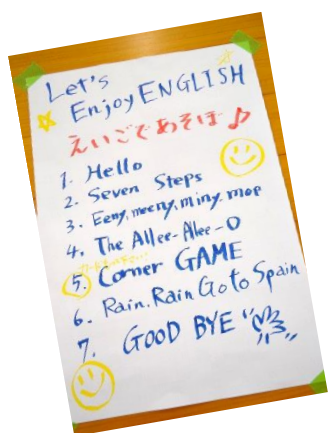 Let's
Enjoy ENGLISH
えいごであそぼ♪
1. Hello
2. Seven Steps
3. Eeny, meeny, miny, moe
4. The Allee-Allee-O
5. Corner GAME
6. Rain. Rain Go to Spain
7. GOOD BYE